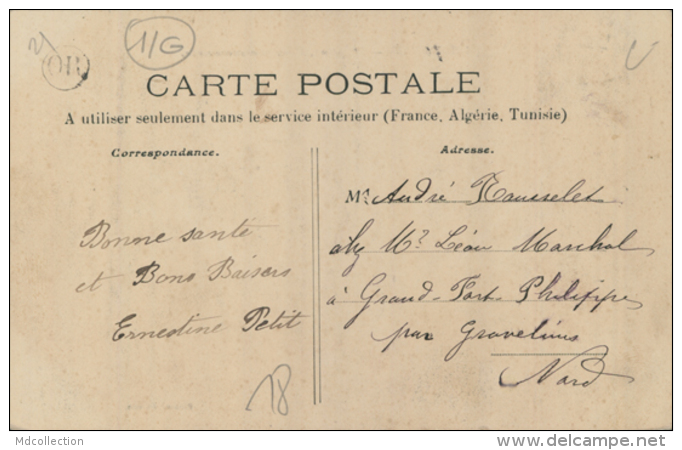 21
OR
11G
CARTE POSTALE
A utiliser seulement dans le service intérieur (France, Algérie, Tunisie)
Correspondance.
Bonne santé
et Bons Baisers
Ernestine Petit
18
Adresse.
Mr André Rousselet
chez Mr Léon Marchal
à Grand-Fort-Philippe
par Gravelines
Nord
Mdcollection
http://www.delcampe.net